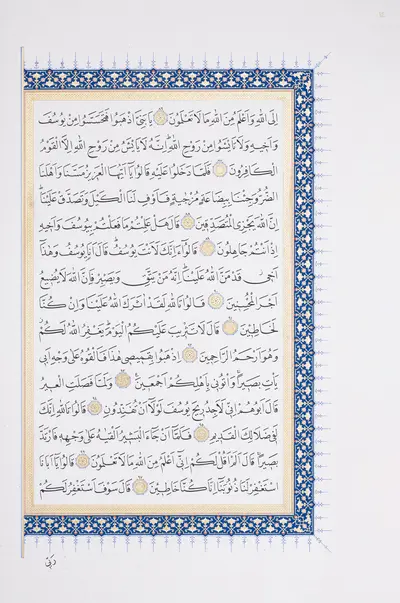 اِلَى اللّٰهِ وَاَعْلَمُ مِنَ اللّٰهِ مَا لَا تَعْلَمُونَ ۞ يَا بَنِيَّ اذْهَبُوا فَتَحَسَّسُوا مِنْ يُوسُفَ
وَاَخِيهِ وَلَا تَايْـَٔسُوا مِنْ رَوْحِ اللّٰهِ اِنَّهُ لَا يَايْـَٔسُ مِنْ رَوْحِ اللّٰهِ اِلَّا الْقَوْمُ
الْكَافِرُونَ ۞ فَلَمَّا دَخَلُوا عَلَيْهِ قَالُوا يَا اَيُّهَا الْعَزِيزُ مَسَّنَا وَاَهْلَنَا
الضُّرُّ وَجِئْنَا بِبِضَاعَةٍ مُزْجٰيةٍ فَاَوْفِ لَنَا الْكَيْلَ وَتَصَدَّقْ عَلَيْنَا
اِنَّ اللّٰهَ يَجْزِي الْمُتَصَدِّقِينَ ۞ قَالَ هَلْ عَلِمْتُمْ مَا فَعَلْتُمْ بِيُوسُفَ وَاَخِيهِ
اِذْ اَنْتُمْ جَاهِلُونَ ۞ قَالُوا ءَاِنَّكَ لَاَنْتَ يُوسُفُ قَالَ اَنَا يُوسُفُ وَهٰذَا
اَخِي قَدْ مَنَّ اللّٰهُ عَلَيْنَا اِنَّهُ مَنْ يَتَّقِ وَيَصْبِرْ فَاِنَّ اللّٰهَ لَا يُضِيعُ
اَجْرَ الْمُحْسِنِينَ ۞ قَالُوا تَاللّٰهِ لَقَدْ اٰثَرَكَ اللّٰهُ عَلَيْنَا وَاِنْ كُنَّا
لَخَاطِـِٔينَ ۞ قَالَ لَا تَثْرِيبَ عَلَيْكُمُ الْيَوْمَ يَغْفِرُ اللّٰهُ لَكُمْ
وَهُوَ اَرْحَمُ الرَّاحِمِينَ ۞ اِذْهَبُوا بِقَمِيصِي هٰذَا فَاَلْقُوهُ عَلٰى وَجْهِ اَبِي
يَاْتِ بَصِيرًا وَاْتُونِي بِاَهْلِكُمْ اَجْمَعِينَ ۞ وَلَمَّا فَصَلَتِ الْعِيرُ
قَالَ اَبُوهُمْ اِنِّي لَاَجِدُ رِيحَ يُوسُفَ لَوْلَا اَنْ تُفَنِّدُونِ ۞ قَالُوا تَاللّٰهِ اِنَّكَ
لَفِي ضَلَالِكَ الْقَدِيمِ ۞ فَلَمَّا اَنْ جَاءَ الْبَشِيرُ اَلْقٰيهُ عَلٰى وَجْهِهِ فَارْتَدَّ
بَصِيرًا قَالَ اَلَمْ اَقُلْ لَكُمْ اِنِّي اَعْلَمُ مِنَ اللّٰهِ مَا لَا تَعْلَمُونَ ۞ قَالُوا يَا اَبَانَا
اسْتَغْفِرْ لَنَا ذُنُوبَنَا اِنَّا كُنَّا خَاطِـِٔينَ ۞ قَالَ سَوْفَ اَسْتَغْفِرُ لَكُمْ
رَبِّي